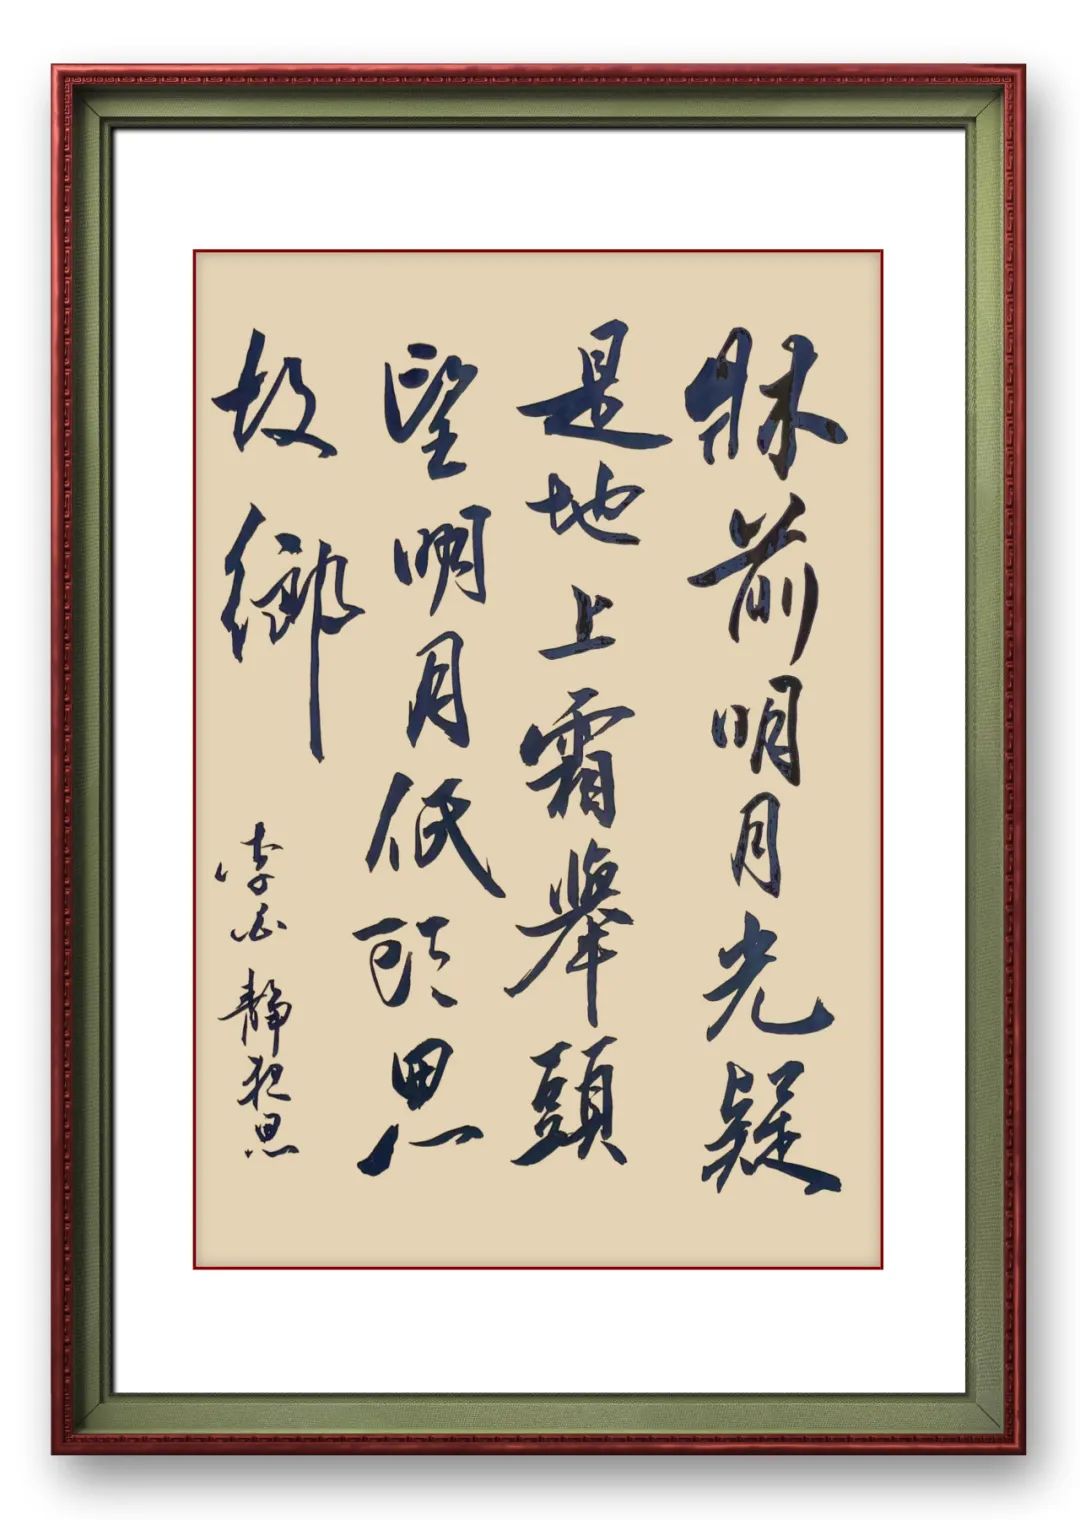 牀前明月光疑
是地上霜舉頭
望明月低頭思
故鄉
李白靜夜思